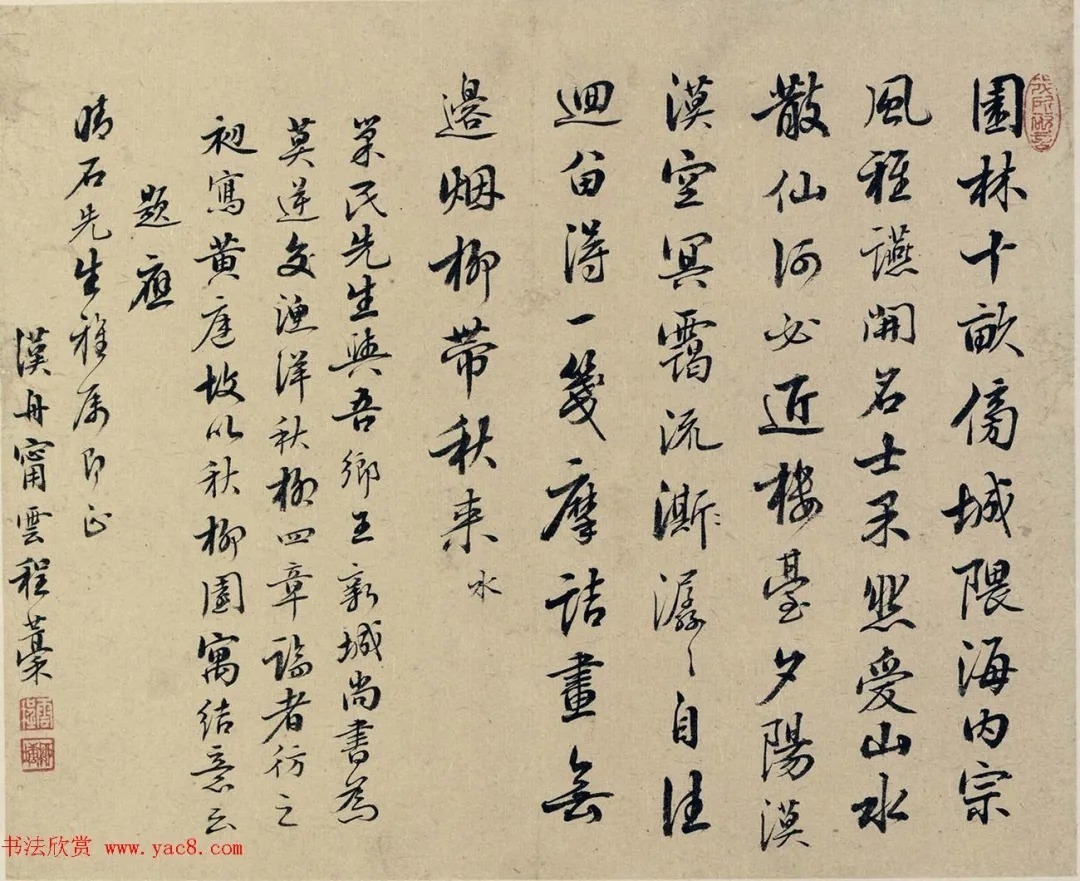 園林十畝傍城隈海内宗
風雅讌開名士果然愛山水
散仙何必近樓臺夕陽漠
漠空冥靄流澌潺〻自往
迴留得一箋摩詰畫無
邊烟柳帶秋來 水
民先生與吾鄉王新城尚書為
莫逆交漁洋秋柳四章論者仿之
初寫黃庭故以秋柳園寓結意云
題應
晴石先生雅属即正
漢舟甯雲程藁
书法欣赏 www.yac8.com